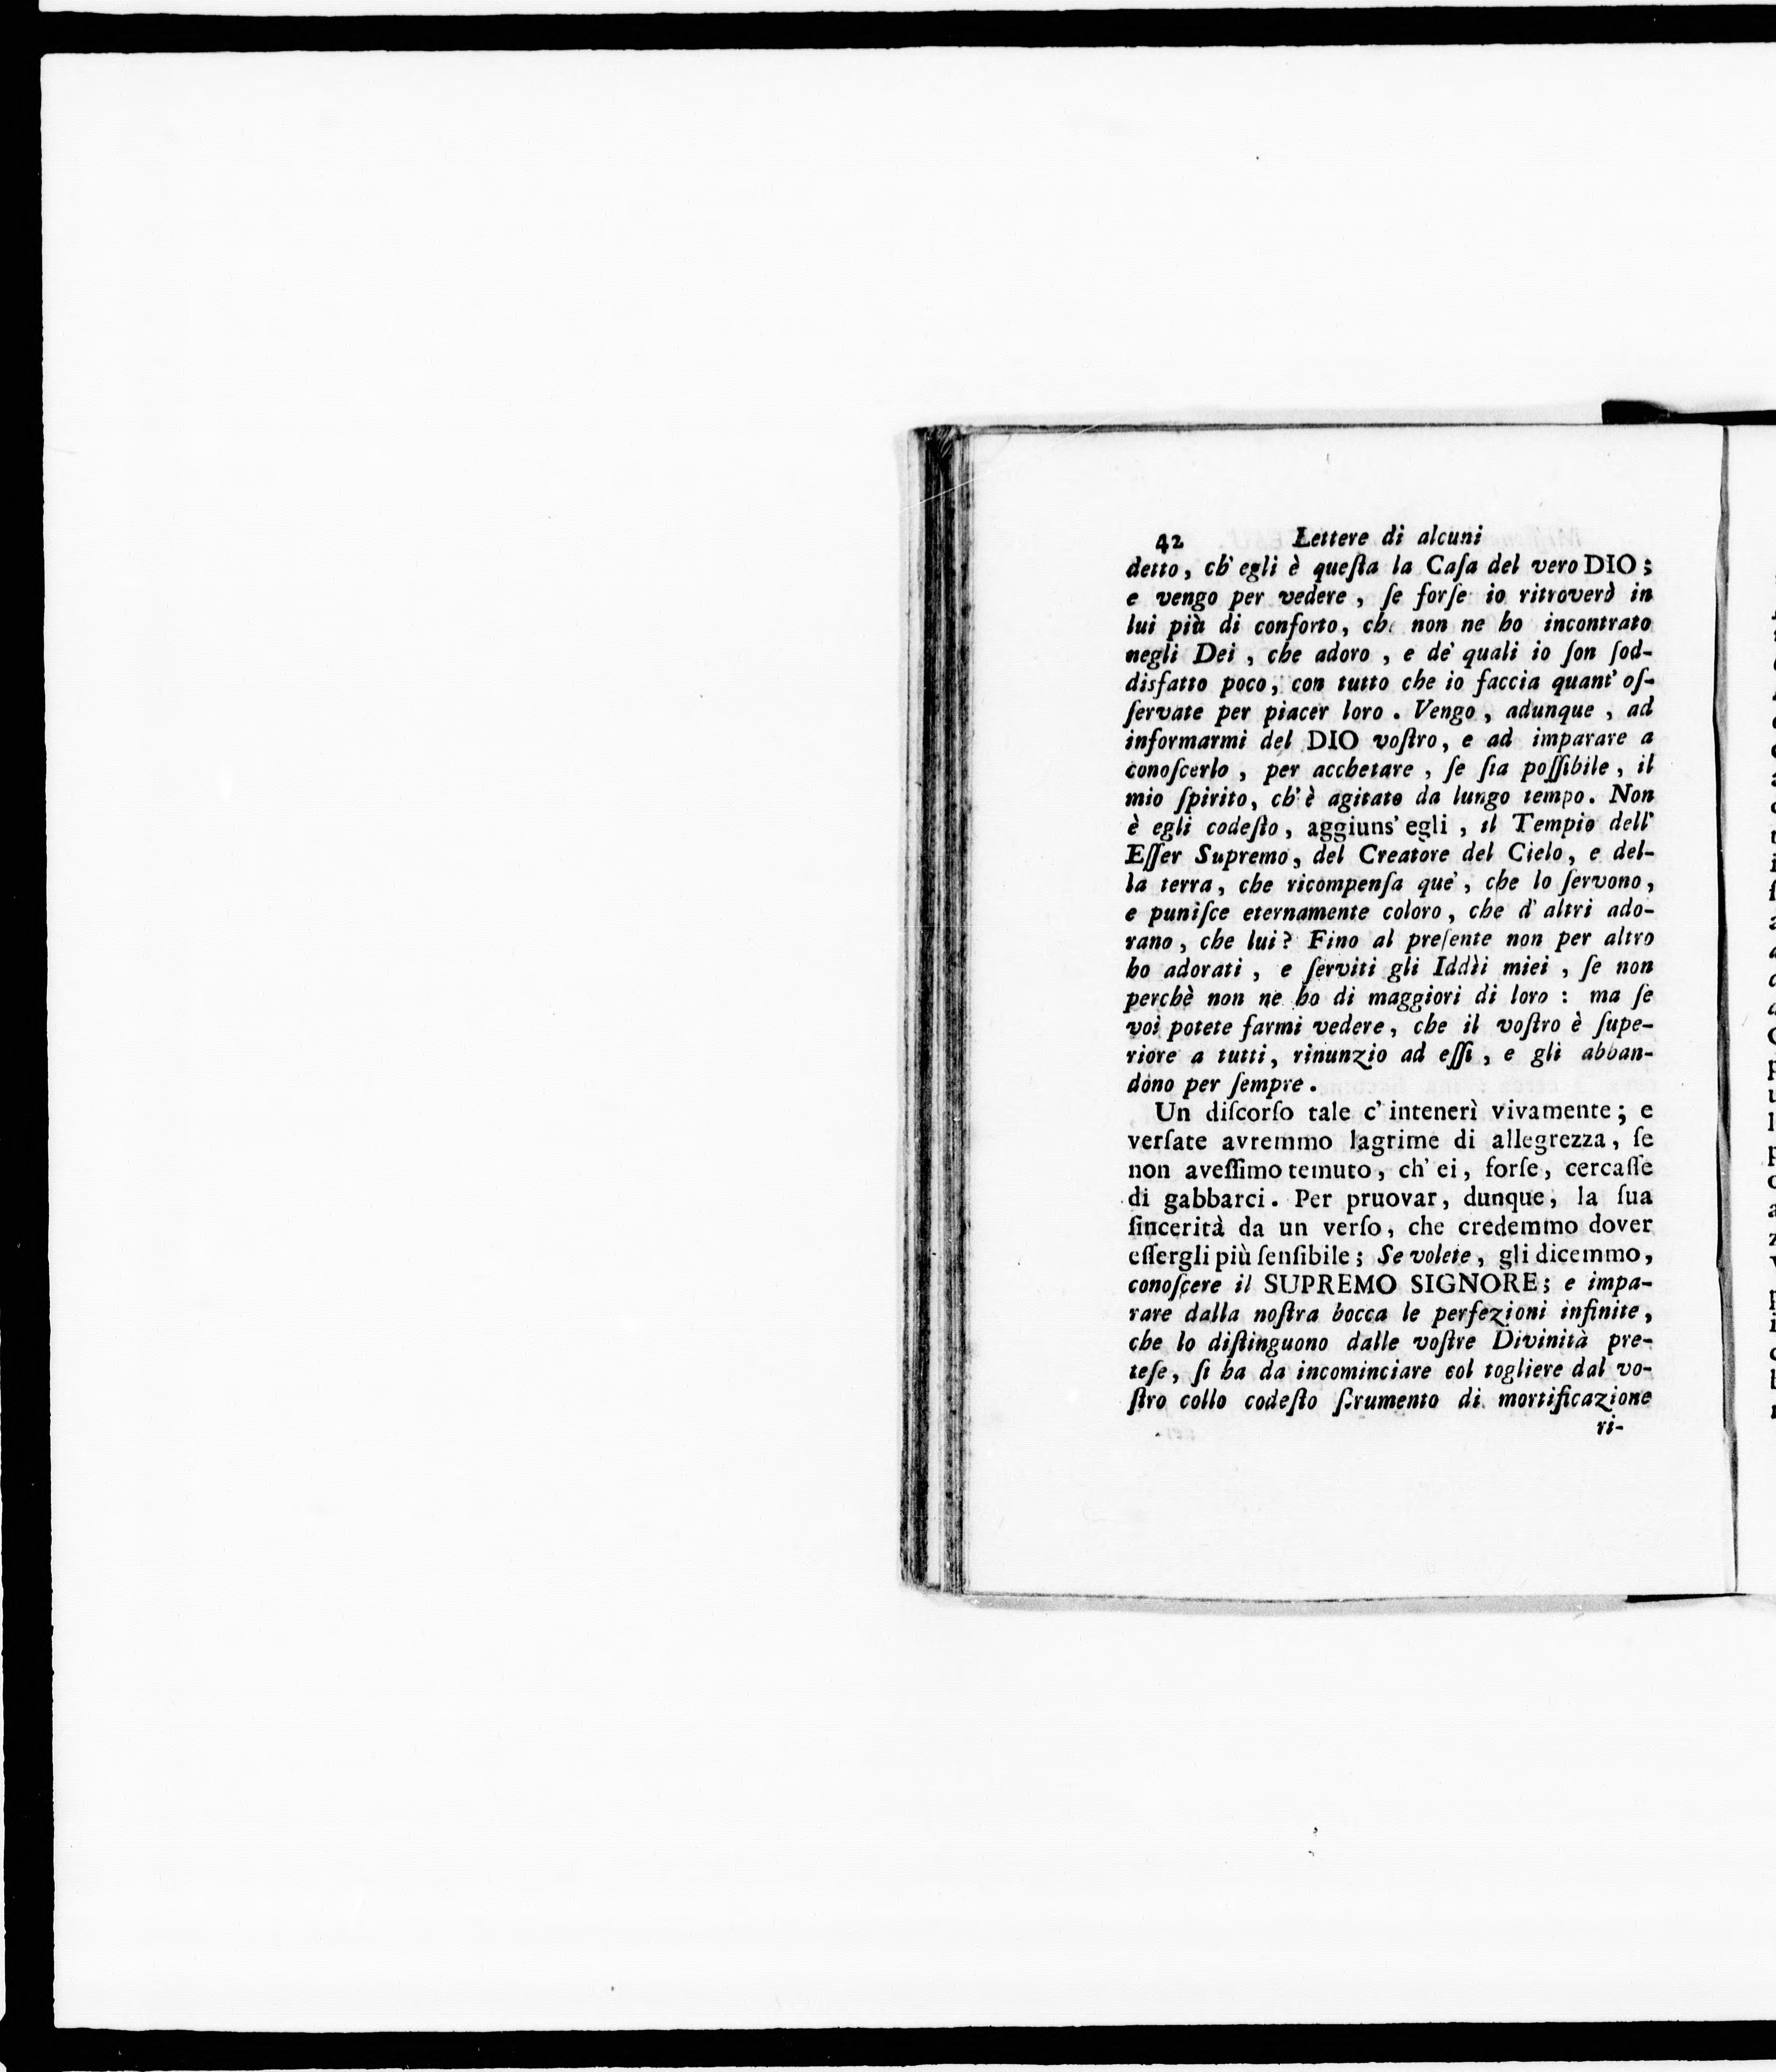 42 Lettere di alcuni
detto, ch' egli è queſta la Caſa del vero DIO;
e vengo per vedere, ſe forſe io ritroverò in
lui più di conforto, che non ne ho incontrato
negli Dei, che adoro, e de' quali io ſon ſod-
disfatto poco, con tutto che io faccia quant' oſ-
ſervate per piacer loro. Vengo, adunque, ad
informarmi del DIO voſtro, e ad imparare a
conoſcerlo, per acchetare, ſe ſia poſſibile, il
mio ſpirito, ch' è agitato da lungo tempo. Non
è egli codeſto, aggiuns' egli, il Tempio dell'
Eſſer Supremo, del Creatore del Cielo, e del-
la terra, che ricompenſa que', che lo ſervono,
e puniſce eternamente coloro, che d' altri ado-
rano, che lui? Fino al preſente non per altro
ho adorati, e ſerviti gli Iddìi miei, ſe non
perchè non ne ho di maggiori di loro: ma ſe
voi potete farmi vedere, che il voſtro è ſupe-
riore a tutti, rinunzio ad eſſi, e gli abban-
dono per ſempre.
Un diſcorſo tale c' intenerì vivamente; e
verſate avremmo lagrime di allegrezza, ſe
non aveſſimo temuto, ch' ei, forſe, cercaſſe
di gabbarci. Per pruovar, dunque, la ſua
ſincerità da un verſo, che credemmo dover
eſſergli più ſenſibile; Se volete, gli dicemmo,
conoſcere il SUPREMO SIGNORE; e impa-
rare dalla noſtra bocca le perfezioni infinite,
che lo diſtinguono dalle voſtre Divinità pre-
teſe, ſi ha da incominciare col togliere dal vo-
ſtro collo codeſto ſtrumento di mortificazione
ri-